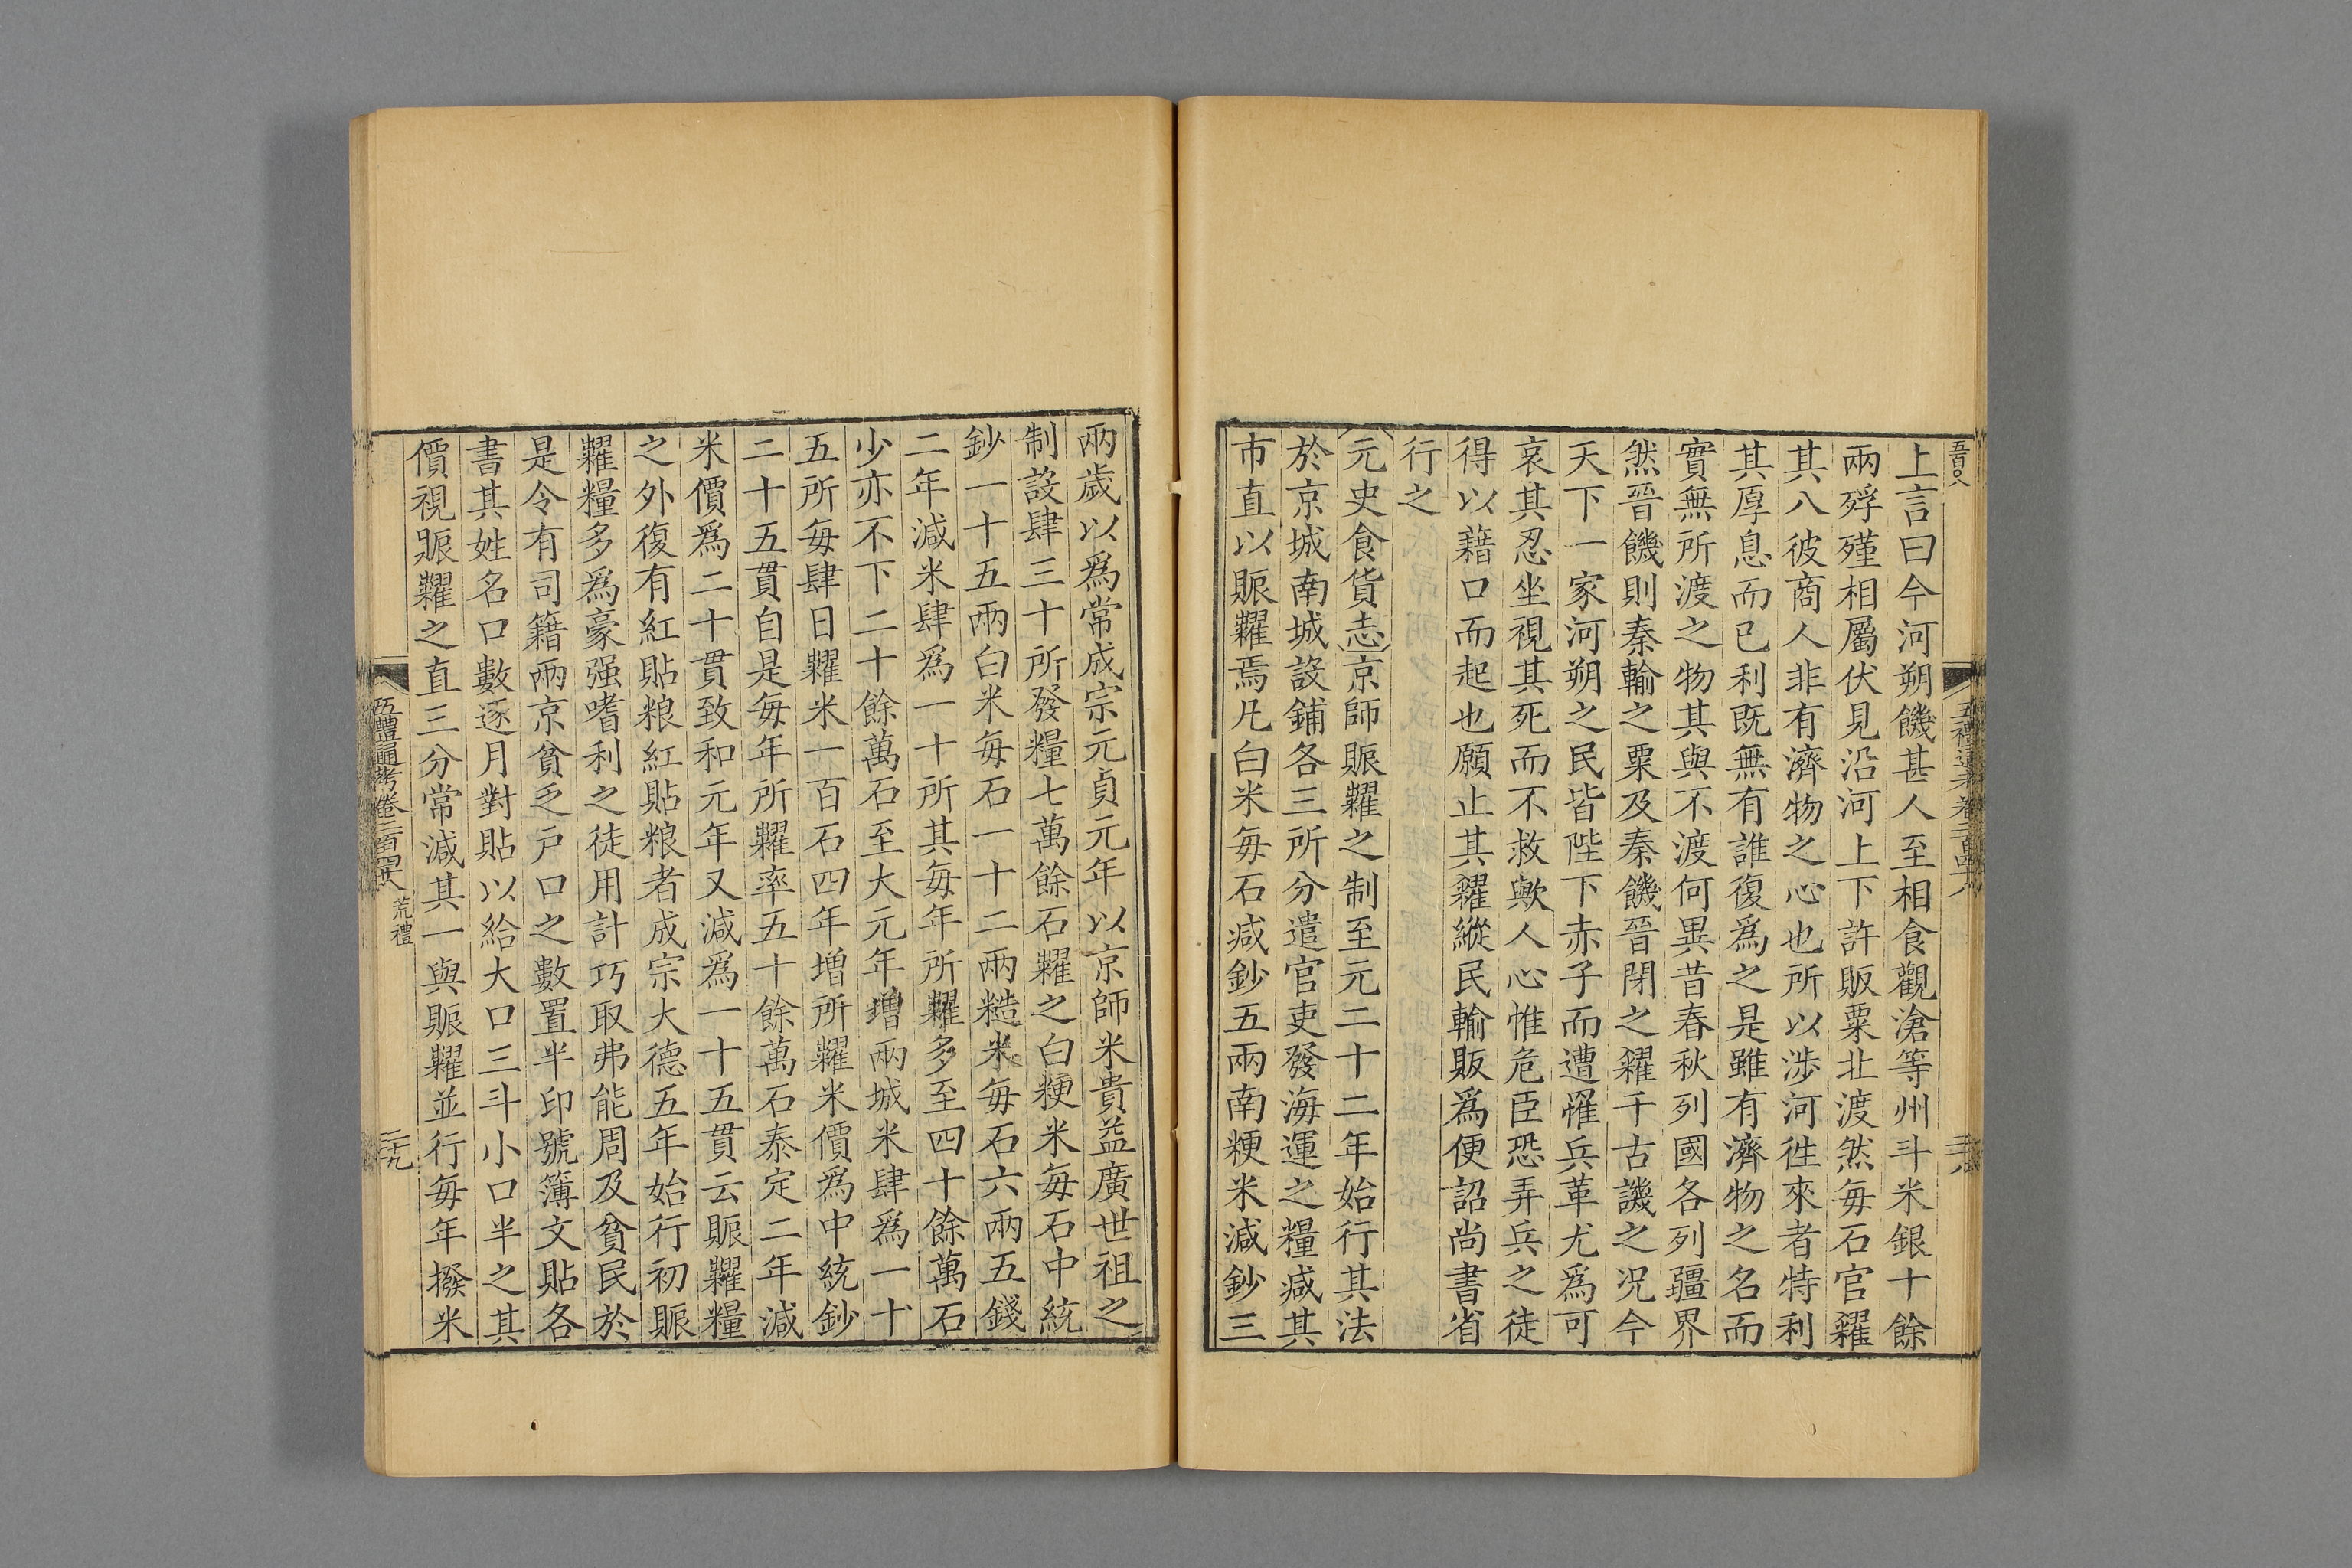 五百八
五禮通考卷二百四十八
二十八
上言曰今河朔饑甚人至相食觀滄等州斗米銀十餘
兩殍殣相屬伏見沿河上下許販粟北渡然每石官糴
其八彼商人非有濟物之心也所以涉河往來者特利
其厚息而已利既無有誰復爲之是雖有濟物之名而
實無所渡之物其與不渡何異昔春秋列國各列疆界
然晉饑則秦輸之粟及秦饑晉閉之糴千古譏之况今
天下一家河朔之民皆陛下赤子而遭罹兵革尤爲可
哀其忍坐視其死而不救歟人心惟危臣恐弄兵之徒
得以藉口而起也願止其糴縱民輸販爲便詔尚書省
行之
元史食貨志京師賑糶之制至元二十二年始行其法
於京城南城設鋪各三所分遣官吏發海運之糧减其
市直以賑糶焉凡白米每石减鈔五兩南粳米減鈔三
兩歲以爲常成宗元貞元年以京師米貴益廣世祖之
制設肆三十所發糧七萬餘石糶之白粳米每石中統
鈔一十五兩白米每石一十二兩糙米每石六兩五錢
二年減米肆爲一十所其每年所糶多至四十餘萬石
少亦不下二十餘萬石至大元年增兩城米肆爲一十
五所每肆日糶米一百石四年增所糶米價爲中統鈔
二十五貫自是每年所糶率五十餘萬石泰定二年減
米價爲二十貫致和元年又減爲一十五貫云賑糶糧
之外復有紅貼粮紅貼粮者成宗大德五年始行初賑
糶糧多爲豪强嗜利之徒用計巧取弗能周及貧民於
是令有司籍兩京貧乏戶口之數置半印號簿文貼各
書其姓名口數逐月對貼以給大口三斗小口半之其
價視賑糶之直三分常減其一與賑糶並行每年撥米
五禮通考卷二百四十八 荒禮
二十九